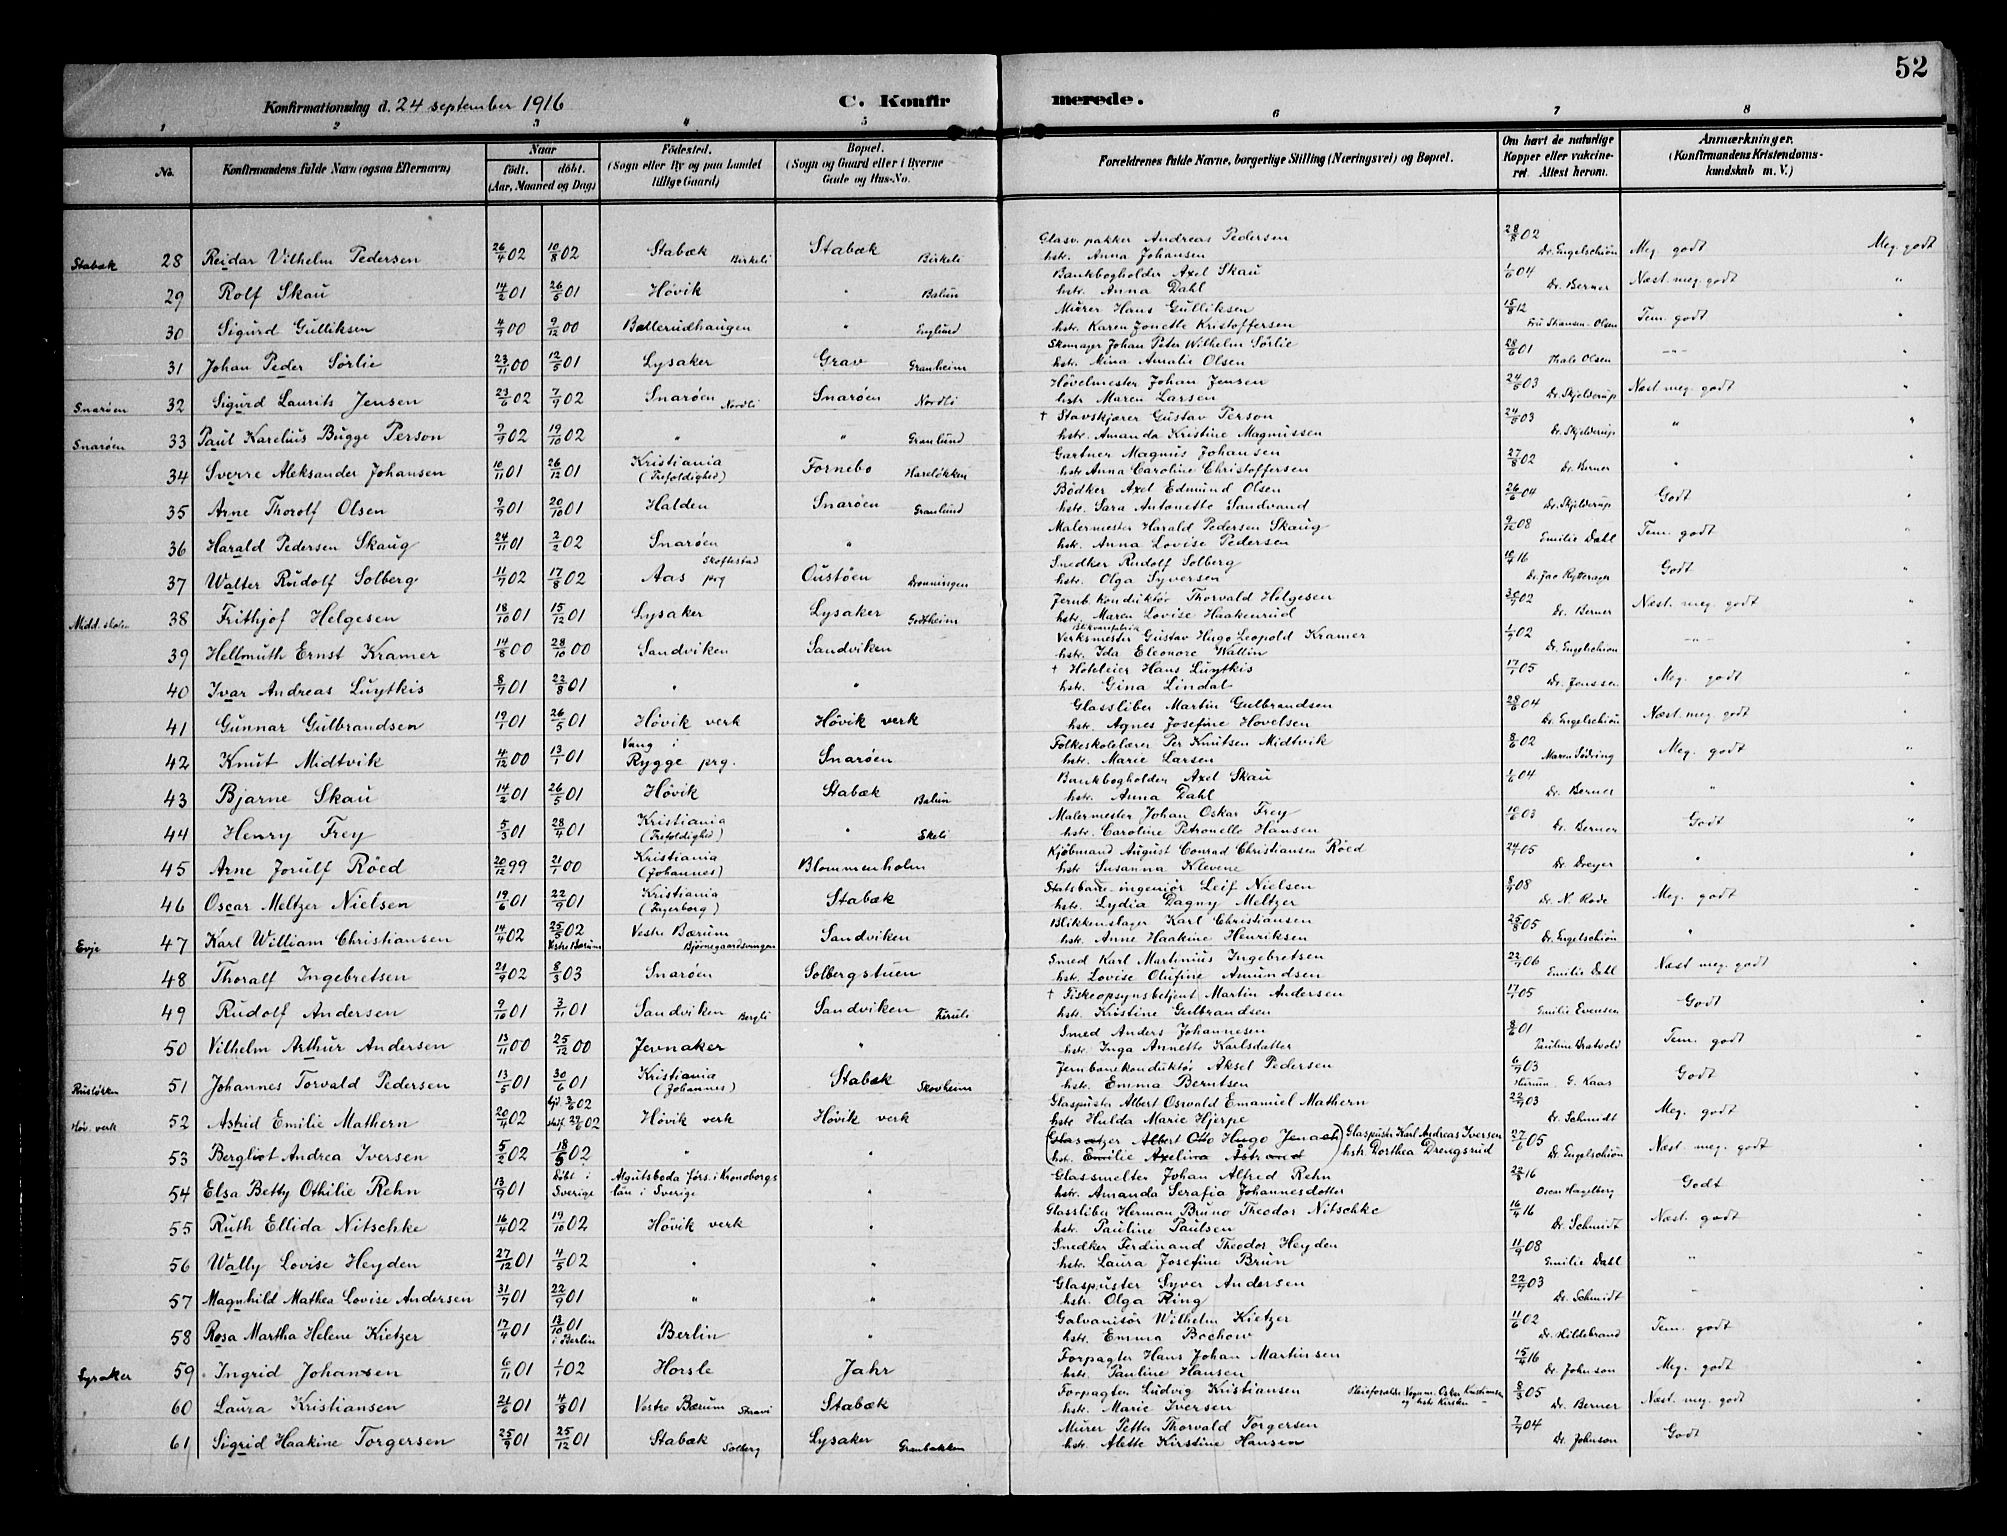 52
Konfirmationsdag d. 24 september 1916 C. Konfirmerede.
1 2 3 4 5 6 7 8
No. Konfirmandens fulde Navn (ogsaa Efternavn) Naar født. døbt. (Aar, Maaned og Dag) Fødested. (Sogn eller By og paa Landet tillige Gaard) Bopæl. (Sogn og Gaard eller i Byerne Gade og Hus-No. Forældrenes fulde Navne, borgerlige Stilling (Næringsvei) og Bopæl. Om havt de naturlige Kopper eller vakcineret. Attest herom. Anmærkninger. (Konfirmandens Kristendomskundskab m. V.)
Stabæk 28 Reidar Vilhelm Pedersen 26/4 02 10/8 02 Stabæk Birkeli Stabæk Birkeli Glasv. pakker Andreas Pedersen hstr. Anna Johansen 28/8 02 Dr. Engelschiøn Meg. godt Meg. godt
29 Rolf Skau 14/2 01 26/5 01 Høvik " Balun Bankbogholder Axel Skau hstr. Anna Dahl 1/6 04 Dr. Berner Næst. meg. godt "
30 Sigurd Gulliksen 4/9 00 9/12 00 Ballerudhaugen " Englund Murer Hans Gulliksen hstr. Karen Jonette Kristoffersen 15/8 12 Fru Olsen Tem. godt "
31 Johan Peder Sørlie 23/11 00 12/5 01 Lysaker Grav Granheim Skomager Johan Peter Wilhelm Sørlie hstr. Mina Amalie Olsen 28/6 01 Thale Olsen —"— "
Snarøen 32 Sigurd Laurits Jensen 23/6 02 7/9 02 Snarøen Nordli Snarøen Nordli Høvelmester Johan Jensen hstr Maren Larsen 24/6 03 Dr. Skjelderup Næst meg. godt "
Snarøen 33 Paul Karelius Bugge Person 9/9 02 19/10 02 " " Granlund † Stavskjærer Gustav Person hstr. Amanda Kristine Magnussen 24/6 03 Dr. Skjelderup " "
34 Sverre Aleksander Johansen 10/11 01 26/12 01 Kristiania (Trefoldighed) Fornebo Hareløkken Gartner Magnus Johansen hstr Anna Caroline Christoffersen 27/8 02 Dr. Berner "
35 Arne Thorolf Olsen 9/9 01 20/10 01 Halden Snarøen Granlund Bødker Axel Edmund Olsen hstr. Sara Antonette Sandvand 26/6 04 Dr. Skjelderup Godt "
36 Harald Pedersen Skaug 24/11 01 2/2 02 Snarøen " Malermester Harald Pedersen Skaug hstr. Anna Lovise Pedersen 9/12 08 Emilie Dahl Tem. godt "
37 Walter Rudolf Solberg 11/7 02 17/8 02 Aas prg Skoftestad Oustøen Dronningen Snedker Rudolf Solberg hstr. Olga Syversen 10/4 16 Godt "
Midd. skolen 38 Frithjof Helgesen 18/10 01 15/12 01 Lysaker Lysaker Godtheim Jernb. konduktør Thorvald Helgesen hstr. Maren Lovise Haakenrud 30/9 02 Dr. Berner Næst. meg. godt "
39 Hellmuth Ernst Kramer 14/8 00 28/10 00 Sandviken Sandviken Verksmester Gustav Hugo Leopold Kramer hstr. Ida Eleonore Wallin 1/9 02 Dr. Engelschiøn —"— "
40 Ivar Andreas Luytkis 8/7 01 22/8 01 " " † Hoteleier Hans Luytkis hstr. Gina Lindal 17/1 05 Dr. Jenssen Meg. godt "
41 Gunnar Gulbrandsen 19/1 01 26/5 01 Høvik verk Høvik verk Glassliber Martin Gulbrandsen hstr. Agnes Josefine Hovelsen 28/6 04 Dr. Engelschiøn Næst. meg godt "
42 Knut Midtvik 4/12 00 13/1 01 Vang i Rygge prg. Snarøen Folkeskolelærer Per Knutsen Midtvik hstr. Marie Larsen 8/6 02 Maren Meg. godt "
43 Bjarne Skau 14/2 01 26/5 01 Høvik Stabæk Balun Bankbogholder Axel Skau hstr. Anna Dahl 1/6 04 Dr. Berner " "
44 Henry Frey 5/3 01 28/4 01 Kristiania (Trefoldighed) " Skeli Malermester Johan Oskar Frey hstr. Caroline Petronelle Hansen 10/6 03 Dr. Berner Godt "
45 Arne Jorulf Röed 20/12 99 21/1 00 Kristiania (Johannes) Blommenholm Kjøbmand August Conrad Christiansen Röed hstr Susanna Klevene 24/1 05 Dr. Dreyer " "
46 Oscar Meltzer Nielsen 19/6 01 22/9 01 Kristiania (Ingerborg) Stabæk Statsbane-ingeniør Leif Nielsen hstr. Lydia Dagny Meltzer 8/9 08 Dr. N. Rode Meg. godt "
Evje 47 Karl William Christiansen 14/4 02 25/5 02 Vestre Bærum Vestre Bærum Bjørnegaardsvingen Sandviken Blikkenslager Karl Christiansen hstr. Anne Haakine Henriksen 25/8 05 Dr. Engelschiøn " "
48 Thoralf Ingebretsen 21/9 02 8/3 03 Snarøen Solbergstuen Smed Karl Martinius Ingebretsen hstr. Lovise Olufine Amundsen 22/7 06 Emilie Dahl Næst meg. godt "
49 Rudolf Andersen 9/10 01 3/11 01 Sandviken Bergli Sandviken Furuli † Fiskeopsynsbetjent Martin Andersen hstr. Kristine Gulbrandsen 17/1 05 Emilie Evensen Godt "
50 Vilhelm Arthur Andersen 13/11 00 25/12 00 Jevnaker " Smed Anders Johannesen hstr. Inga Annette Karlsdatter 8/6 01 Pauline Tem. godt "
Rusløkken 51 Johannes Torvald Pedersen 13/5 01 30/6 01 Kristiania (Johannes) Stabæk Skovheim Jernbanekonduktør Aksel Pedersen hstr. Emma Berntsen 6/9 03 Hurum. G. Kaas Godt "
Høv. verk 52 Astrid Emilie Mathern 20/4 02 hjd 3/6 02 stadf. 29/6 02 Høvik verk Høvik verk Glaspuster Albert Oswald Emanuel Mathern hstr Hulda Marie Hjerpe 22/9 03 Dr. Schmidt Meg. godt "
53 Bergliot Andrea Iversen 5/2 02 18/5 02 " " (Glasætzer Albert Otto Hugo Jenach hst. Emilie Axelina Åstrand) Glaspuster Karl Andreas Iversen hstr Dorthea Drengsrud 27/6 05 Dr. Engelschiøn Næst meg. godt "
54 Elsa Betty Othilie Rehn 13/9 01 Döbt i Sverige Algutsboda førs. i Kronobergs län i Sverige " Glassmelter Johan Alfred Rehn hstr. Amanda Serafia Johannesdotter 22/8 16 Oscar Hagelberg Godt "
55 Ruth Ellida Nitschke 16/4 02 19/10 02 Høvik verk " Glassliber Herman Bruno Theodor Nitschke hstr. Pauline Paulsen 16/4 16 Dr. Schmidt Næst. godt "
56 Wally Lovise Heyden 27/12 01 4/5 02 " " Snedker Ferdinand Theodor Heyden hstr. Laura Josefine Brun 11/9 08 Emilie Dahl " "
57 Magnhild Mathea Lovise Andersen 31/7 01 22/9 01 " " Glaspuster Syver Andersen hstr. Olga Ring 22/9 03 Dr. Schmidt " "
58 Rosa Martha Helene Kietzer 17/4 01 13/10 01 i Berlin Berlin " Galvanisør Wilhelm Kietzer hstr. Emma Bochow 11/6 02 Dr. Hildebrand Tem. godt "
Lysaker 59 Ingrid Johansen 6/11 01 1/1 02 Horsle Jahr Forpagter Hans Johan Martinsen hstr. Pauline Hansen 15/4 16 Dr. Johnson Meg. godt "
60 Laura Kristiansen 21/6 01 4/8 01 Vestre Bærum Stabæk Forpagter Ludvig Kristiansen hstr. Marie Iversen Pleieforældre Vognm. Oskar Kristiansen og hstr Kirsten 8/3 05 Dr. Berner Næst. meg. godt "
61 Sigrid Haakine Torgersen 25/9 01 25/12 01 Stabæk Solberg Lysaker Granbakken Murer Petter Thorvald Torgersen hstr. Alette Kirstine Hansen 7/9 04 Dr. Johnson Godt "